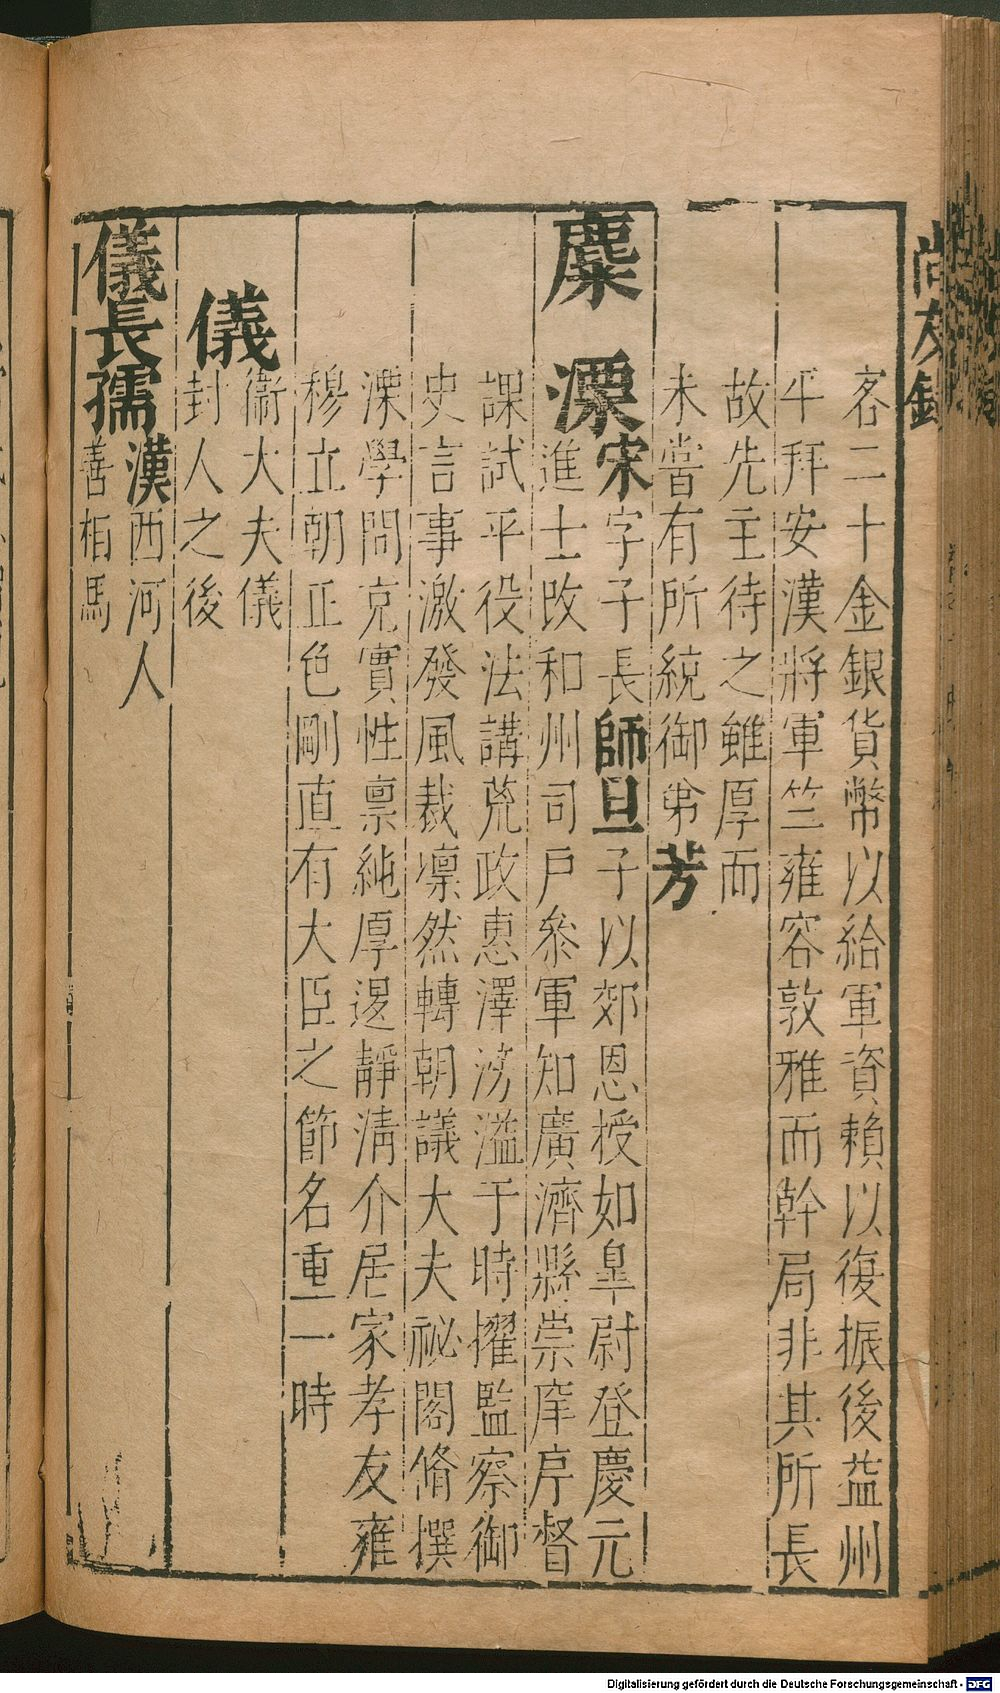 尚友錄
客二十金銀貨幣以給軍資賴以復振後益州
平拜安漢將軍竺雍容敦雅而幹局非其所長
故先主待之雖厚而
未嘗有所統御弟芳
麋溧宋字子長師旦子以郊恩授如臯尉登慶元
進士改和州司戶叅軍知廣濟縣崇庠序督
課試平役法講荒政惠澤滂溢于時擢監察御
史言事激發風裁凛然轉朝議大夫祕閣脩撰
溧學問克實性禀純厚邊靜淸介居家孝友雍
穆立朝正色剛直有大臣之節名重一時
儀
衞大夫儀
封人之後
儀長孺漢西河人
善相馬
Digitalisierung gefördert durch die Deutsche Forschungsgemeinschaft - DFG